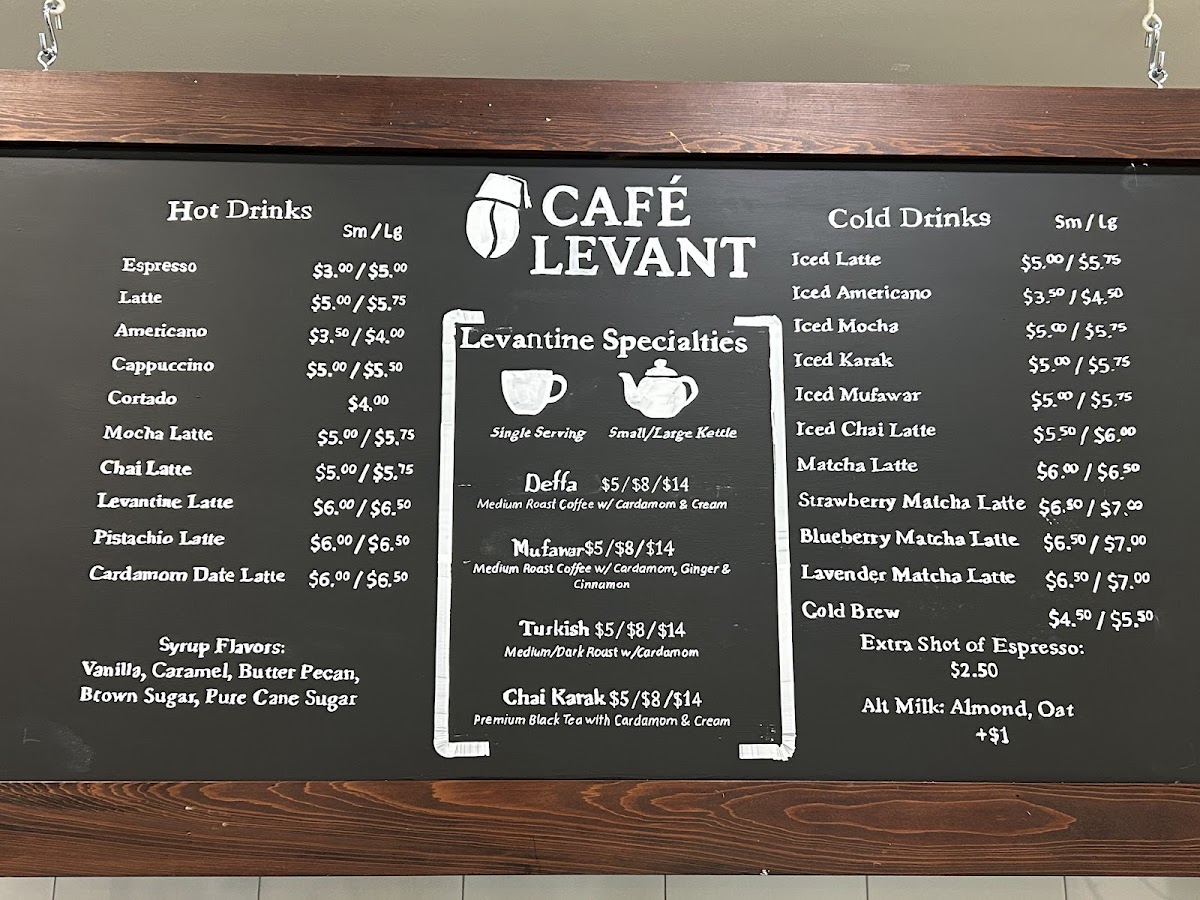 CAFÉ
LEVANT
Hot Drinks
Sm/Lg
Espresso $3.00/$5.00
Latte $5.00/$5.75
Americano $3.50/$4.00
Cappuccino $5.00/$5.50
Cortado $4.00
Mocha Latte $5.00/$5.75
Chai Latte $5.00/$5.75
Levantine Latte $6.00/$6.50
Pistachio Latte $6.00/$6.50
Cardamom Date Latte $6.00/$6.50
Syrup Flavors:
Vanilla, Caramel, Butter Pecan,
Brown Sugar, Pure Cane Sugar
Levantine Specialties
Single Serving Small/Large Kettle
Deffa $5/$8/$14
Medium Roast Coffee w/ Cardamom & Cream
Mufawar $5/$8/$14
Medium Roast Coffee w/ Cardamom, Ginger &
Cinnamon
Turkish $5/$8/$14
Medium/Dark Roast w/Cardamom
Chai Karak $5/$8/$14
Premium Black Tea with Cardamom & Cream
Cold Drinks Sm/Lg
Iced Latte $5.00/$5.75
Iced Americano $3.50/$4.50
Iced Mocha $5.00/$5.75
Iced Karak $5.00/$5.75
Iced Mufawar $5.00/$5.75
Iced Chai Latte $5.50/$6.00
Matcha Latte $6.00/$6.50
Strawberry Matcha Latte $6.50/$7.00
Blueberry Matcha Latte $6.50/$7.00
Lavender Matcha Latte $6.50/$7.00
Cold Brew $4.50/$5.50
Extra Shot of Espresso:
$2.50
Alt Milk: Almond, Oat
+$1